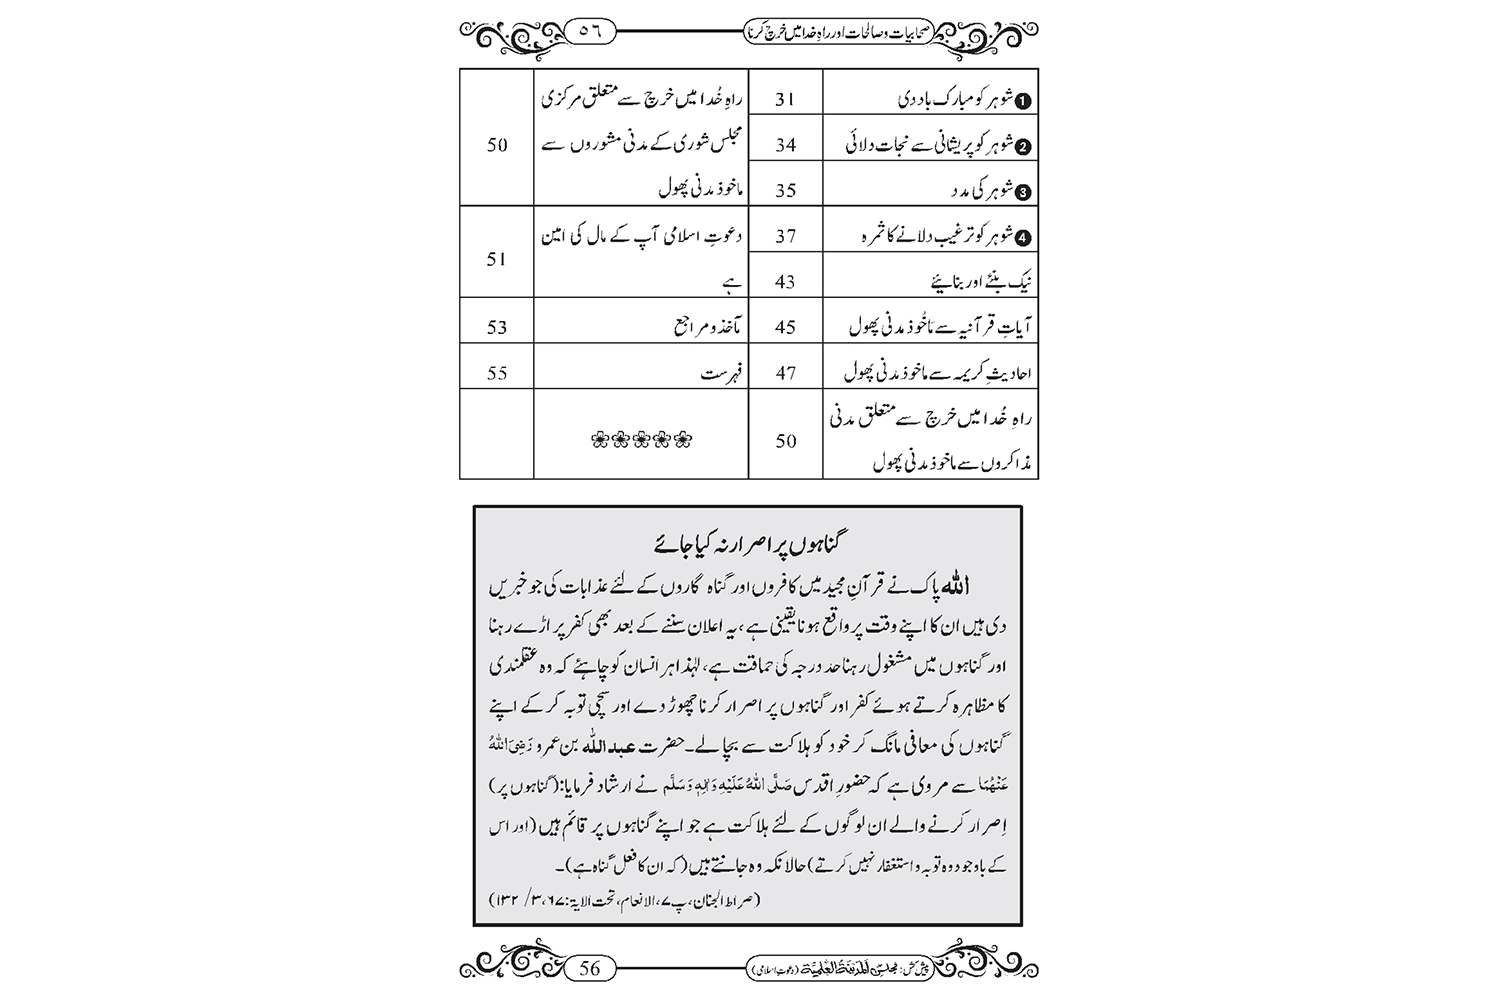 صحابیات و صالحات اور راہِ خدا میں خرچ کرنا
٥٦
❶ شوہر کو مبارک باد دی
31
❷ شوہر کو پریشانی سے نجات دلائی
34
❸ شوہر کی مدد
35
❹ شوہر کو ترغیب دلانے کا ثمرہ
37
نیک بنئے اور بنائیے
43
آیاتِ قرآنیہ سے مَاخُوذ مدنی پھول
45
احادیثِ کریمہ سے ماخوذ مدنی پھول
47
راہِ خُدا میں خرچ سے متعلق مدنی
مذاکروں سے ماخوذ مدنی پھول
50
راہِ خُدا میں خرچ سے متعلق مرکزی
مجلس شوریٰ کے مدنی مشوروں سے
ماخوذ مدنی پھول
50
دعوتِ اسلامی آپ کے مال کی امین
ہے
51
مآخذ و مراجع
53
فہرست
55
گناہوں پر اصرار نہ کیا جائے
اللہ پاک نے قرآنِ مجید میں کافروں اور گناہ گاروں کے لئے عذابات کی جو خبریں
دی ہیں ان کا اپنے وقت پر واقع ہونا یقینی ہے، یہ اعلان سننے کے بعد بھی کفر پر اڑے رہنا
اور گناہوں میں مشغول رہنا حد درجہ کی حماقت ہے، لہٰذا ہر انسان کو چاہئے کہ وہ عقلمندی
کا مظاہرہ کرتے ہوئے کفر اور گناہوں پر اصرار کرنا چھوڑ دے اور سچی توبہ کر کے اپنے
گناہوں کی معافی مانگ کر خود کو ہلاکت سے بچا لے۔ حضرت عبداللہ بن عمرو رَضِیَ اللّٰہُ
عَنْہُمَا سے مروی ہے کہ حضورِ اقدس صَلَّی اللّٰہُ عَلَیْہِ وَاٰلِہٖ وَسَلَّم نے ارشاد فرمایا: (گناہوں پر)
اِصرار کرنے والے ان لوگوں کے لئے ہلاکت ہے جو اپنے گناہوں پر قائم ہیں (اور اس
کے باوجود وہ توبہ و استغفار نہیں کرتے) حالانکہ وہ جانتے ہیں (کہ ان کا فعل گناہ ہے)۔
(صراط الجنان، پ۷، الانعام، تحت الایۃ: ۶۷، ۳/ ۱۳۲)
پیش کش: مجلس المدینۃ العلمیۃ (دعوتِ اسلامی)
56